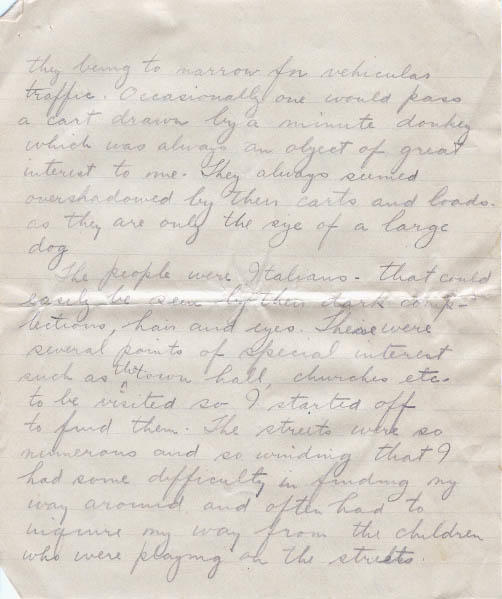 they being to narrow for vehicular
traffic. Occasionally one would pass
a cart drawn by a minute donkey
which was always an object of great
interest to me. They always seemed
overshadowed by their carts and loads.
as they are only the size of a large
dog
The people were Italians - that could
easily be seen by their dark comp-
lections, hair and eyes. There were
several points of special interest
such as the town hall, churches etc.
to be visited so I started off
to find them. The streets were so
numerous and so winding that I
had some difficulty in finding my
way around and often had to
inquire my way from the children
who were playing on the streets.